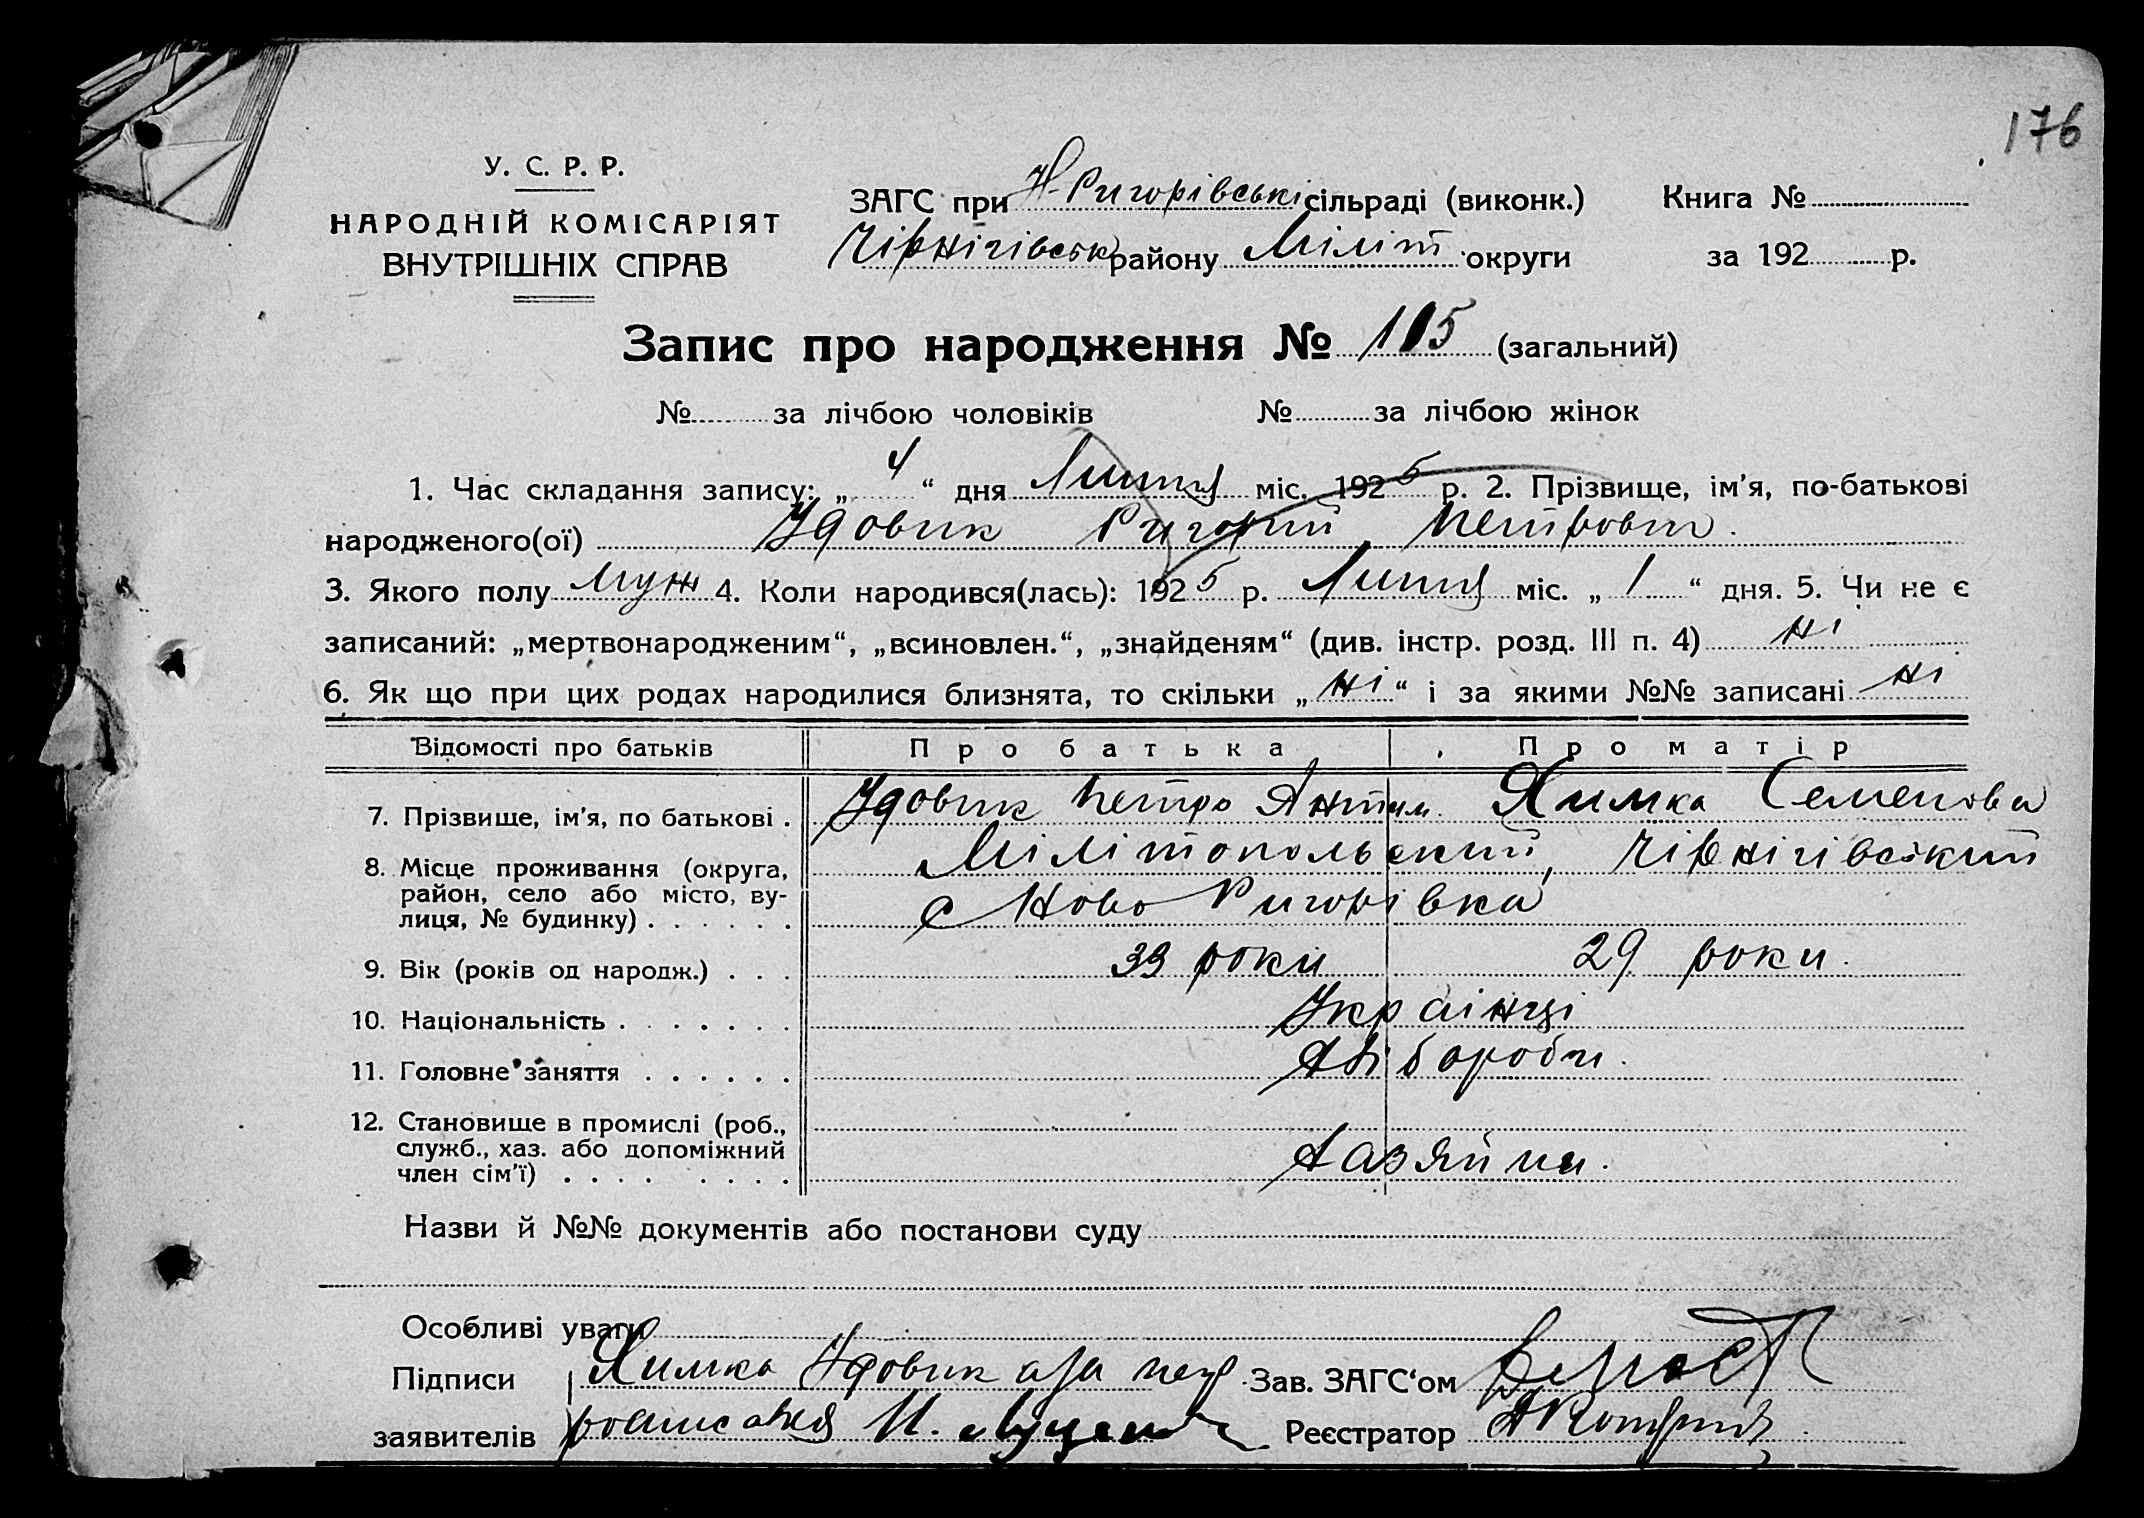 176
У. С. Р. Р.
НАРОДНІЙ КОМІСАРІЯТ
ВНУТРІШНІХ СПРАВ
ЗАГС при Н-Ригорівські сільраді (виконк.)
Чірнігівськ району Міліт округи
Книга №
за 192 р.
Запис про народження № 105 (загальний)
№ за лічбою чоловіків № за лічбою жінок
1. Час складання запису: „ 4 “ дня Липня міс. 1925 р. 2. Прізвище, ім’я, по-батькові
народженого(ої) Удовик Ригорий Петрович
3. Якого полу муж 4. Коли народився(лась): 1925 р. Липня міс. „ 1 “ дня. 5. Чи не є
записаний: „мертвонародженим“, „всиновлен.“, „знайденям“ (див. інстр. розд. III п. 4) ні
6. Як що при цих родах народилися близнята, то скільки „ ні “ і за якими №№ записані ні
Відомості про батьків Про батька Про матір
7. Прізвище, ім’я, по батькові . Удовик Петро Антим. Химка Семенова
8. Місце проживання (округа, район, село або місто, вулиця, № будинку) Мілітопольский, Чірнігівский
с Ново Ригорівка
9. Вік (років од народж.) . . . 33 роки 29 роки.
10. Національність Українці
11. Головне заняття Хліборобы.
12. Становище в промислі (роб., служб., хаз. або допоміжний член сім’ї) Хазяйин.
Назви й №№ документів або постанови суду
Особливі уваги
Підписи Химка Удовик а за неї Зав. ЗАГС‘ом
заявителів росписався И. Реєстратор